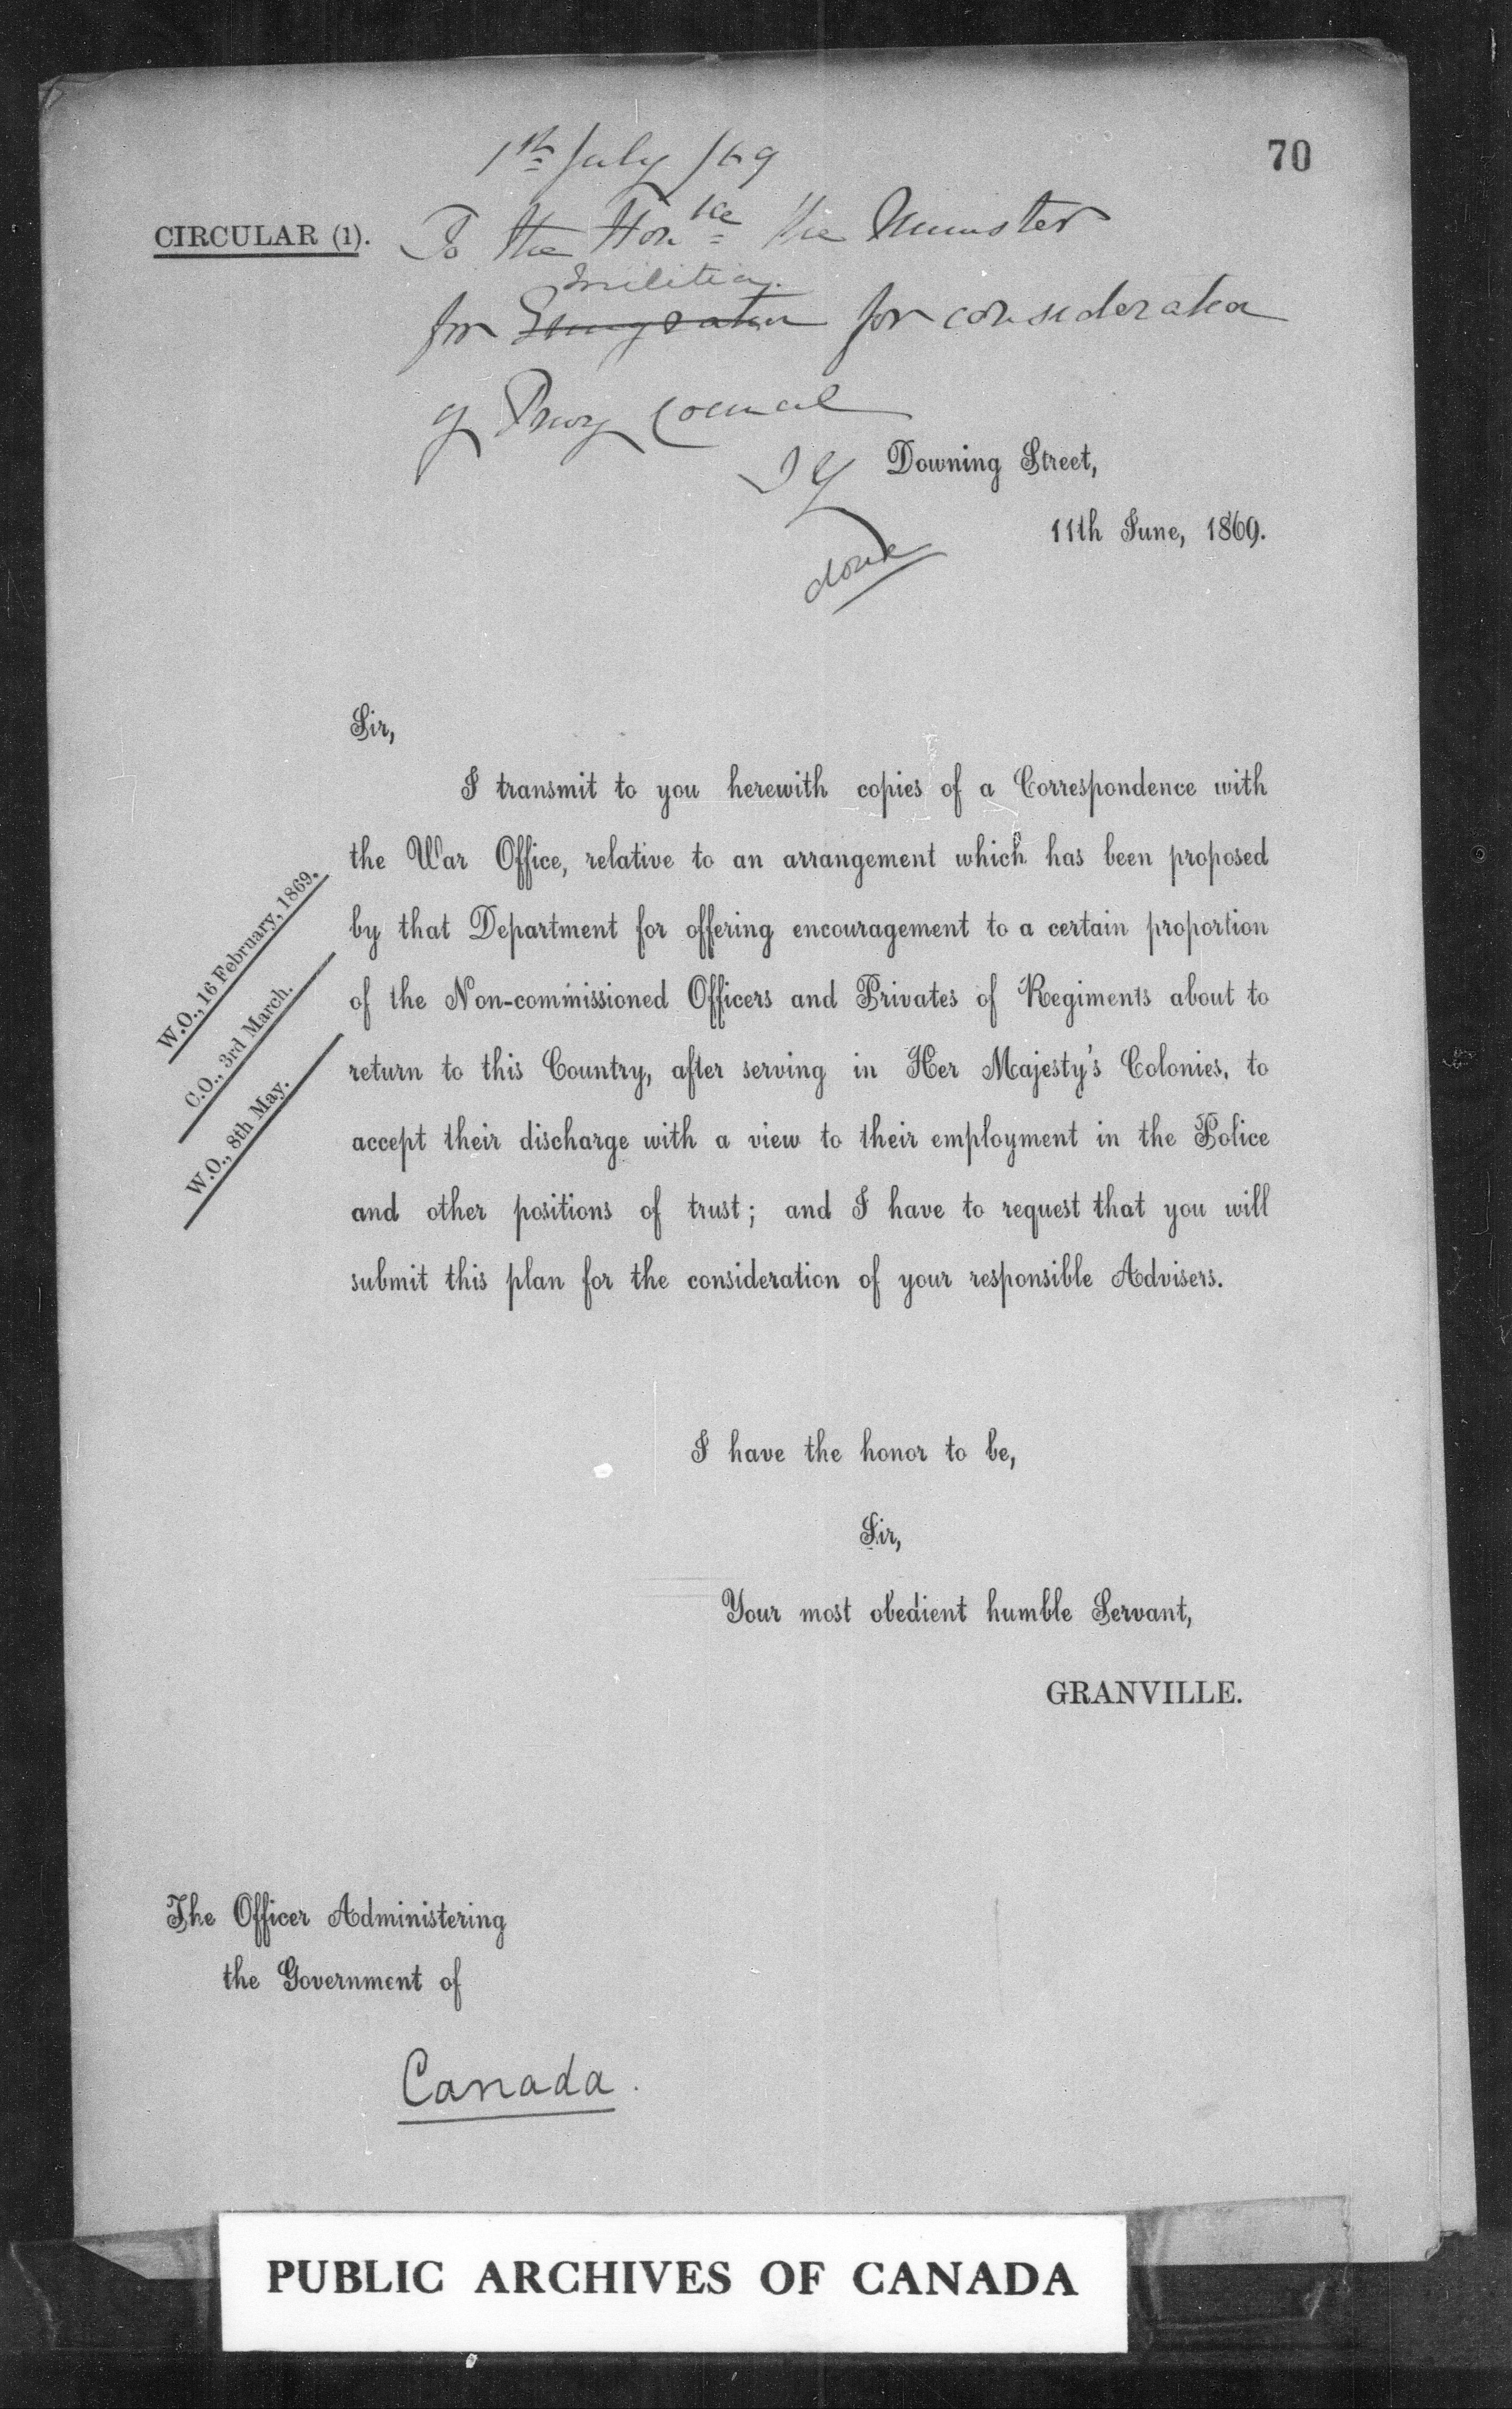 70
1st July /69
CIRCULAR (1).
To the Honble the Minister
militia.
for Emigration for consideration
of Privy Council
JY
done
Downing Street,
11th June, 1869.
Sir,
I transmit to you herewith copies of a Correspondence with
the War Office, relative to an arrangement which has been proposed
by that Department for offering encouragement to a certain proportion
of the Non-commissioned Officers and Privates of Regiments about to
return to this Country, after serving in Her Majesty's Colonies, to
accept their discharge with a view to their employment in the Police
and other positions of trust; and I have to request that you will
submit this plan for the consideration of your responsible Advisers.
W.O., 16 February, 1869.
C.O., 3rd March.
W.O., 8th May.
I have the honor to be,
Sir,
Your most obedient humble Servant,
GRANVILLE.
The Officer Administering
the Government of
Canada.
PUBLIC ARCHIVES OF CANADA